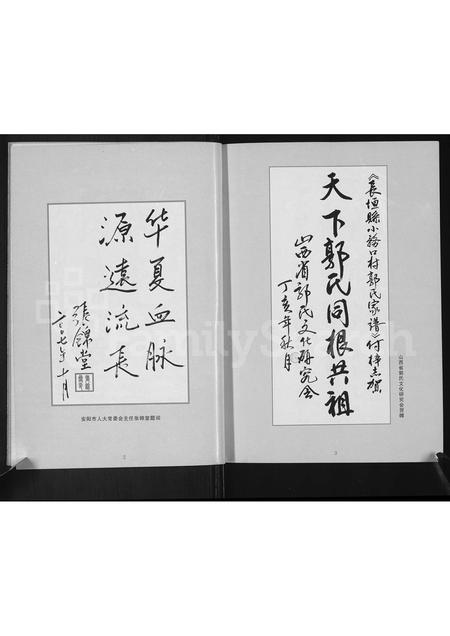 华夏血脉
源遠流長
張錦堂
二〇〇七年十月
安阳市人大常委会主任张锦堂题词
2
《長垣縣小務口村郭氏家譜》付梓志賀
天下郭氏同根共祖
山西省郭氏文化研究会
丁亥年秋月
山西省郭氏文化研究会贺辞
3
FamilySearch